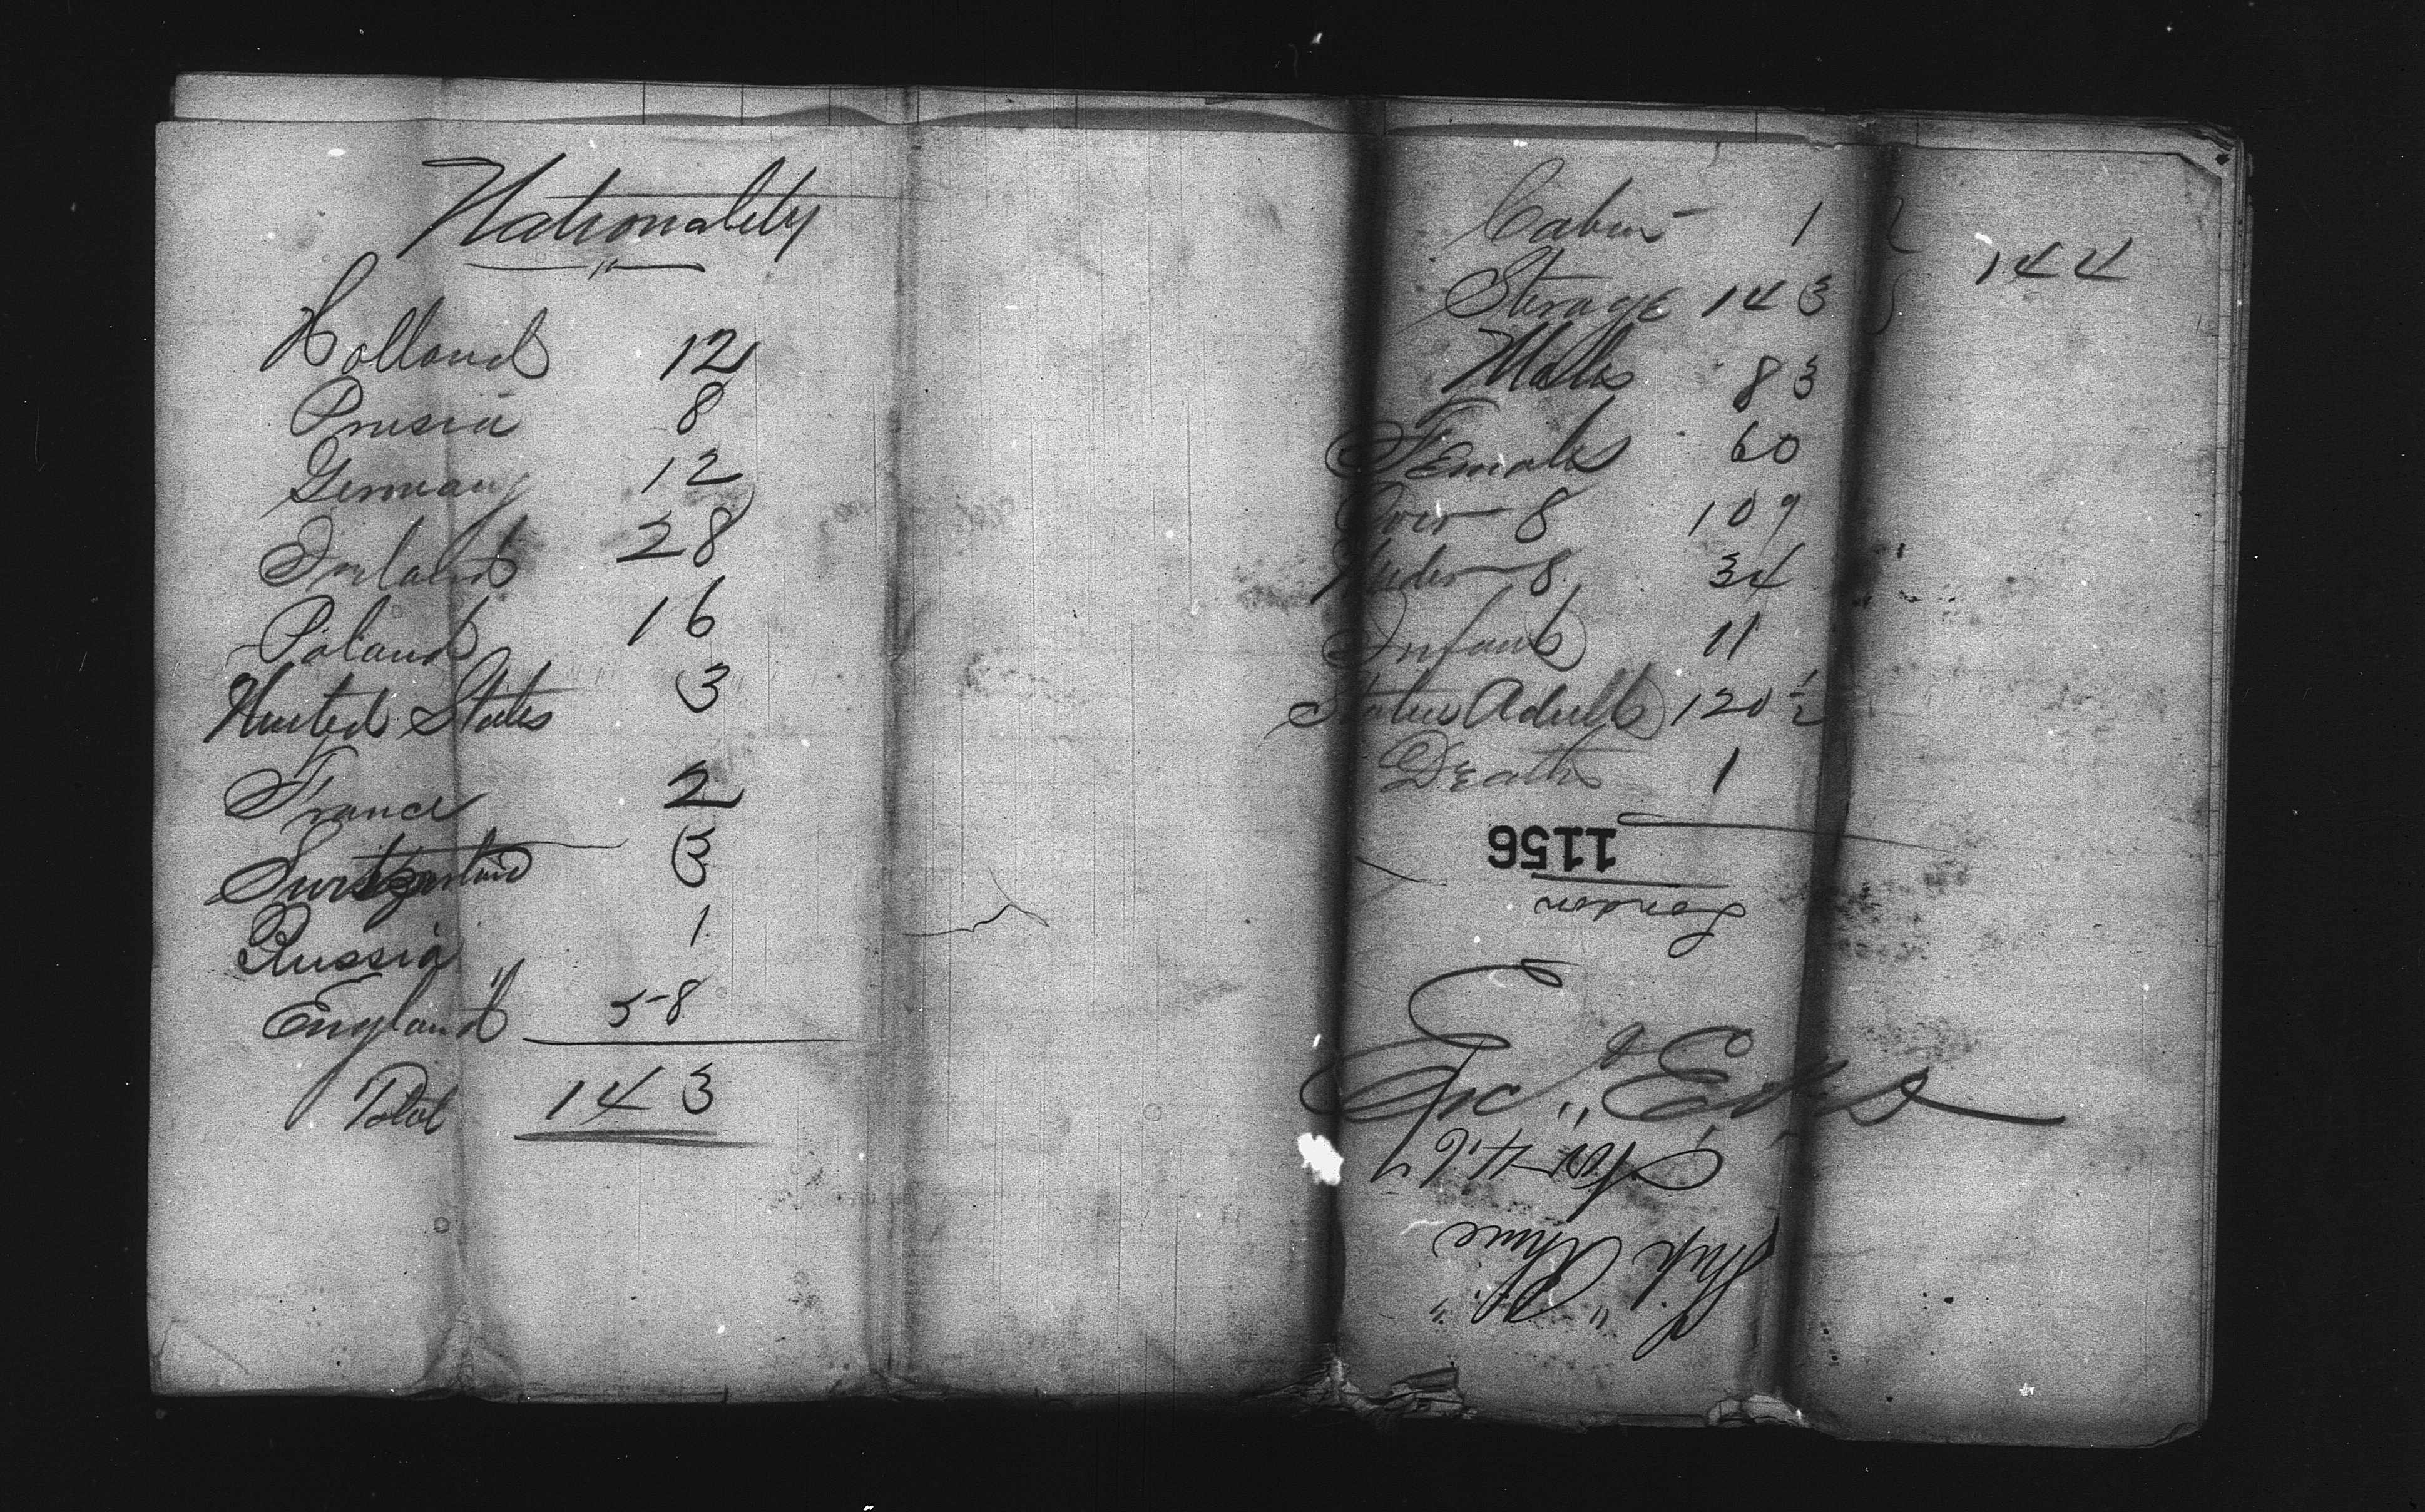 Nationality
Holland 12
Prusia 8
Germany 12
Ireland 28
Poland 16
United States 3
France 2
Switzerland 3
Russia 1
England 58
Total 143
Cabin 1
144
Sterage 143
Males 83
Females 60
Over 8 109
Under 8 34
Infants 11
Status Adults 120 1/2
Death 1
1156
London
Ship "Rhine"